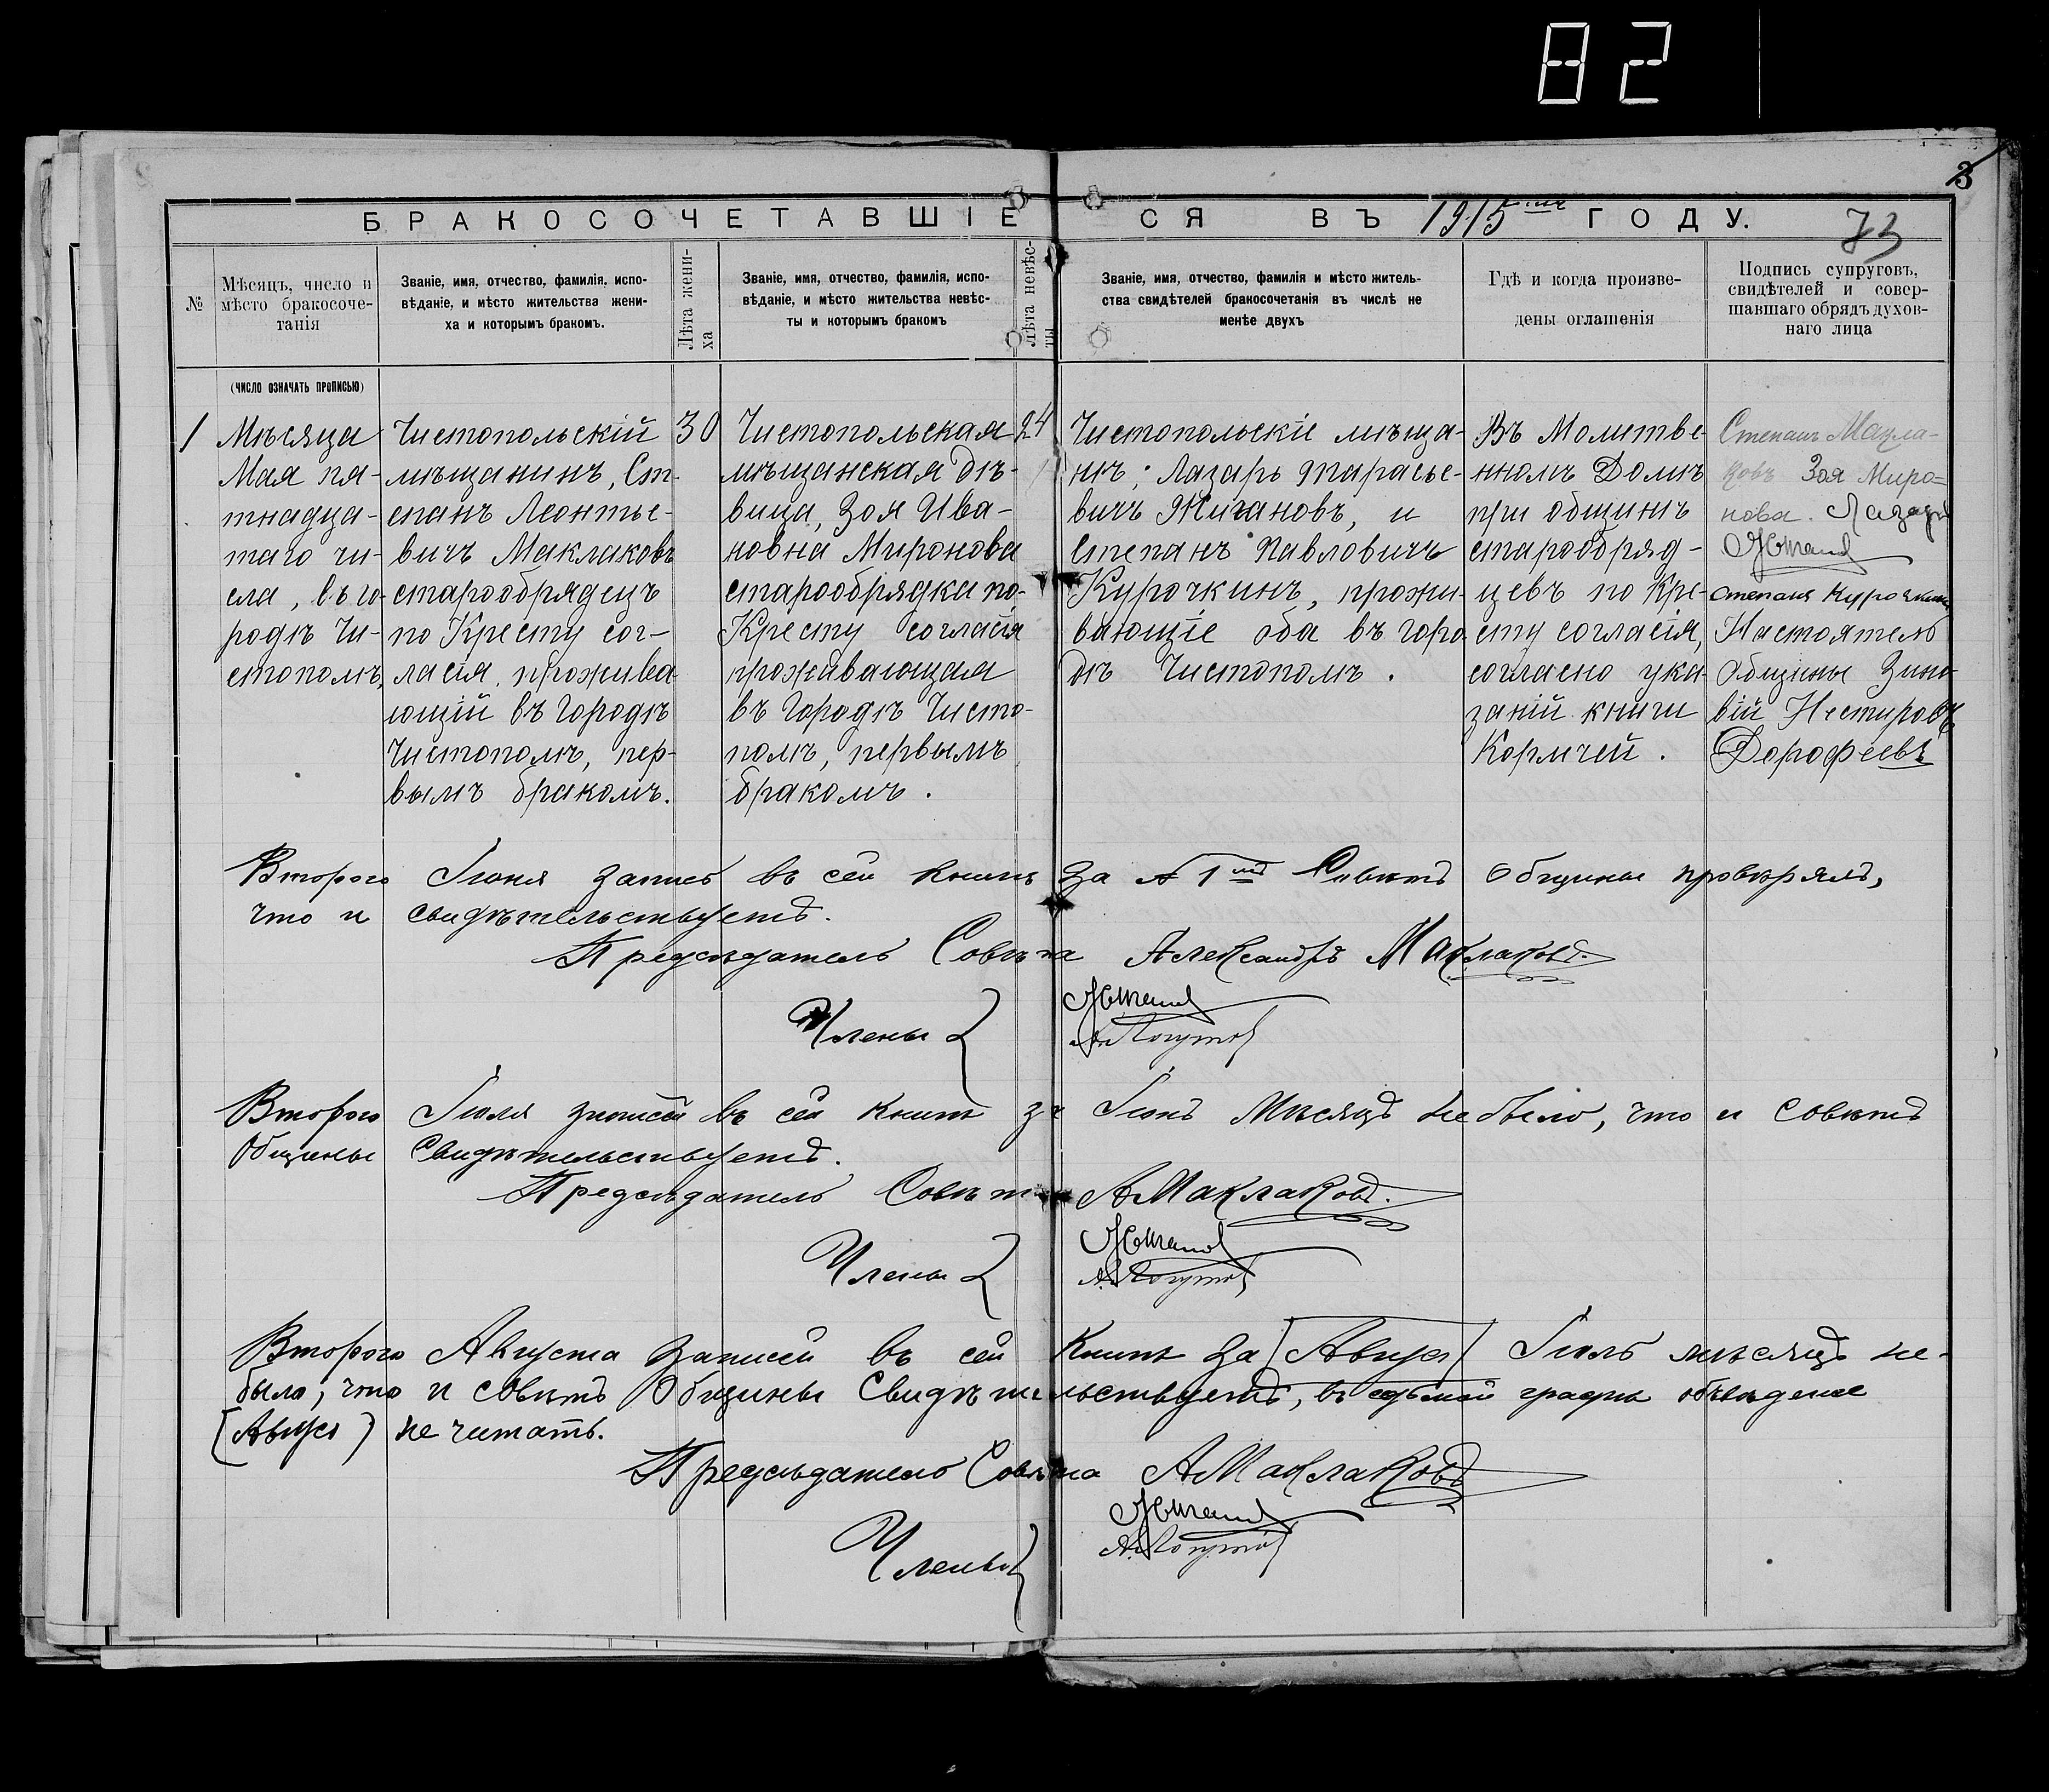 82
3
БРАКОСОЧЕТАВШІЕСЯ ВЪ 1915 ГОДУ.
73
№
Мѣсяцъ, число и
мѣсто бракосоче-
танія
(число означать прописью)
Званіе, имя, отчество, фамилія, испо-
вѣданіе, и мѣсто жительства жени-
ха и которымъ бракомъ.
Лѣта жени-
ха
Званіе, имя, отчество, фамилія, испо-
вѣданіе, и мѣсто жительства невѣс-
ты и которымъ бракомъ
Лѣта невѣс-
ты
Званіе, имя, отчество, фамилія и мѣсто житель-
ства свидѣтелей бракосочетанія въ числѣ не
менѣе двухъ
Гдѣ и когда произве-
дены оглашенія
Подпись супруговъ,
свидѣтелей и совер-
шавшаго обрядъ духов-
наго лица
1
Мѣсяца
Мая пя-
тнадца-
таго чи-
сла, въ го-
родѣ Чи-
стополѣ,
Чистопольскій
мѣщанинъ, Ст-
епанъ Леонтье-
вичъ Маклаковъ
старообрядецъ
по Кресту сог-
ласія, прожива-
ющій въ Городѣ
Чистополѣ, пер-
вымъ бракомъ.
30
Чистопольская
мѣщанская дѣ-
вица, Зоя Ива-
новна Миронова
старообрядка по-
Кресту согласія
проживающая
въ Городѣ Чисто-
полѣ, первымъ
бракомъ.
24
Чистопольскіе мѣща-
нѣ; Лазарь Тарасье-
вичъ Жигановъ, и
Степанъ Павловичъ
Курочкинъ, прожи-
вающіе оба въ Горо-
дѣ Чистополѣ.
Въ Молитве-
нномъ Домѣ
при общинѣ
старообряд-
цевъ по Кре-
сту согласія,
согласно ука-
заній книги
Кормчей.
Степанъ Макла-
ковъ Зоя Миро-
нова. Лазарь
Степанъ Курочкинъ
Настоятель
Общины Зино-
вій Нестеровъ
Дорофеевъ
Второго Іюня запись въ сей книгѣ за № 1 Совѣтъ Общины провѣрялъ,
что и свидѣтельствуетъ.
Предсѣдатель Совѣта Александръ Маклаковъ.
Члены
Второго Іюля записей въ сей книгѣ за Іюнь Мѣсяцъ не было, что и Совѣтъ
Общины Свидѣтельствуетъ.
Предсѣдатель Совѣта АМаклаковъ.
Члены
Второго Августа Записей въ сей Книгѣ за (Август) Іюль мѣсяцъ не-
было, что и совѣтъ Общины Свидѣтельствуетъ, въ седьмой графѣ
(Август) не читать.
Предсѣдатель Совѣта АМаклаковъ
Члены